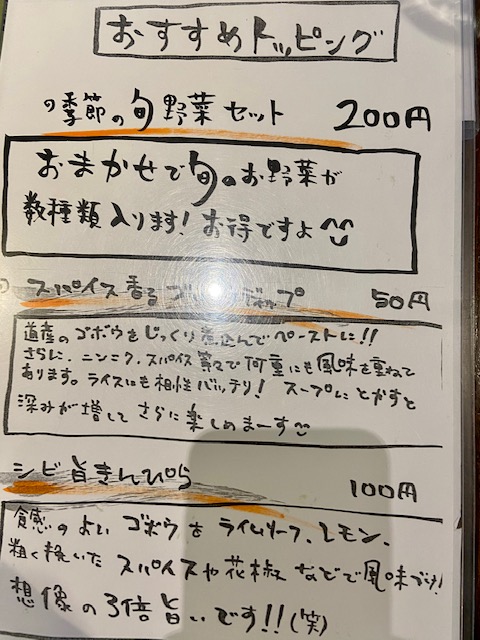 おすすめトッピング
季節の旬野菜セット 200円
おまかせで旬のお野菜が
数種類入ります! お得ですよ
スパイス香るゴボウディップ 50円
道産のゴボウをじっくり煮込んでペーストに!!
さらに、ニンニク、スパイス等々で何重にも風味を重ねて
あります。ライスにも相性バッチリ! スープにとかすと
深みが増してさらに楽しめまーす
シビ旨きんぴら 100円
食感のよいゴボウをライムリーフ、レモン、
粗く挽いたスパイスや花椒などで風味づけ!
想像の3倍旨いです!!(笑)